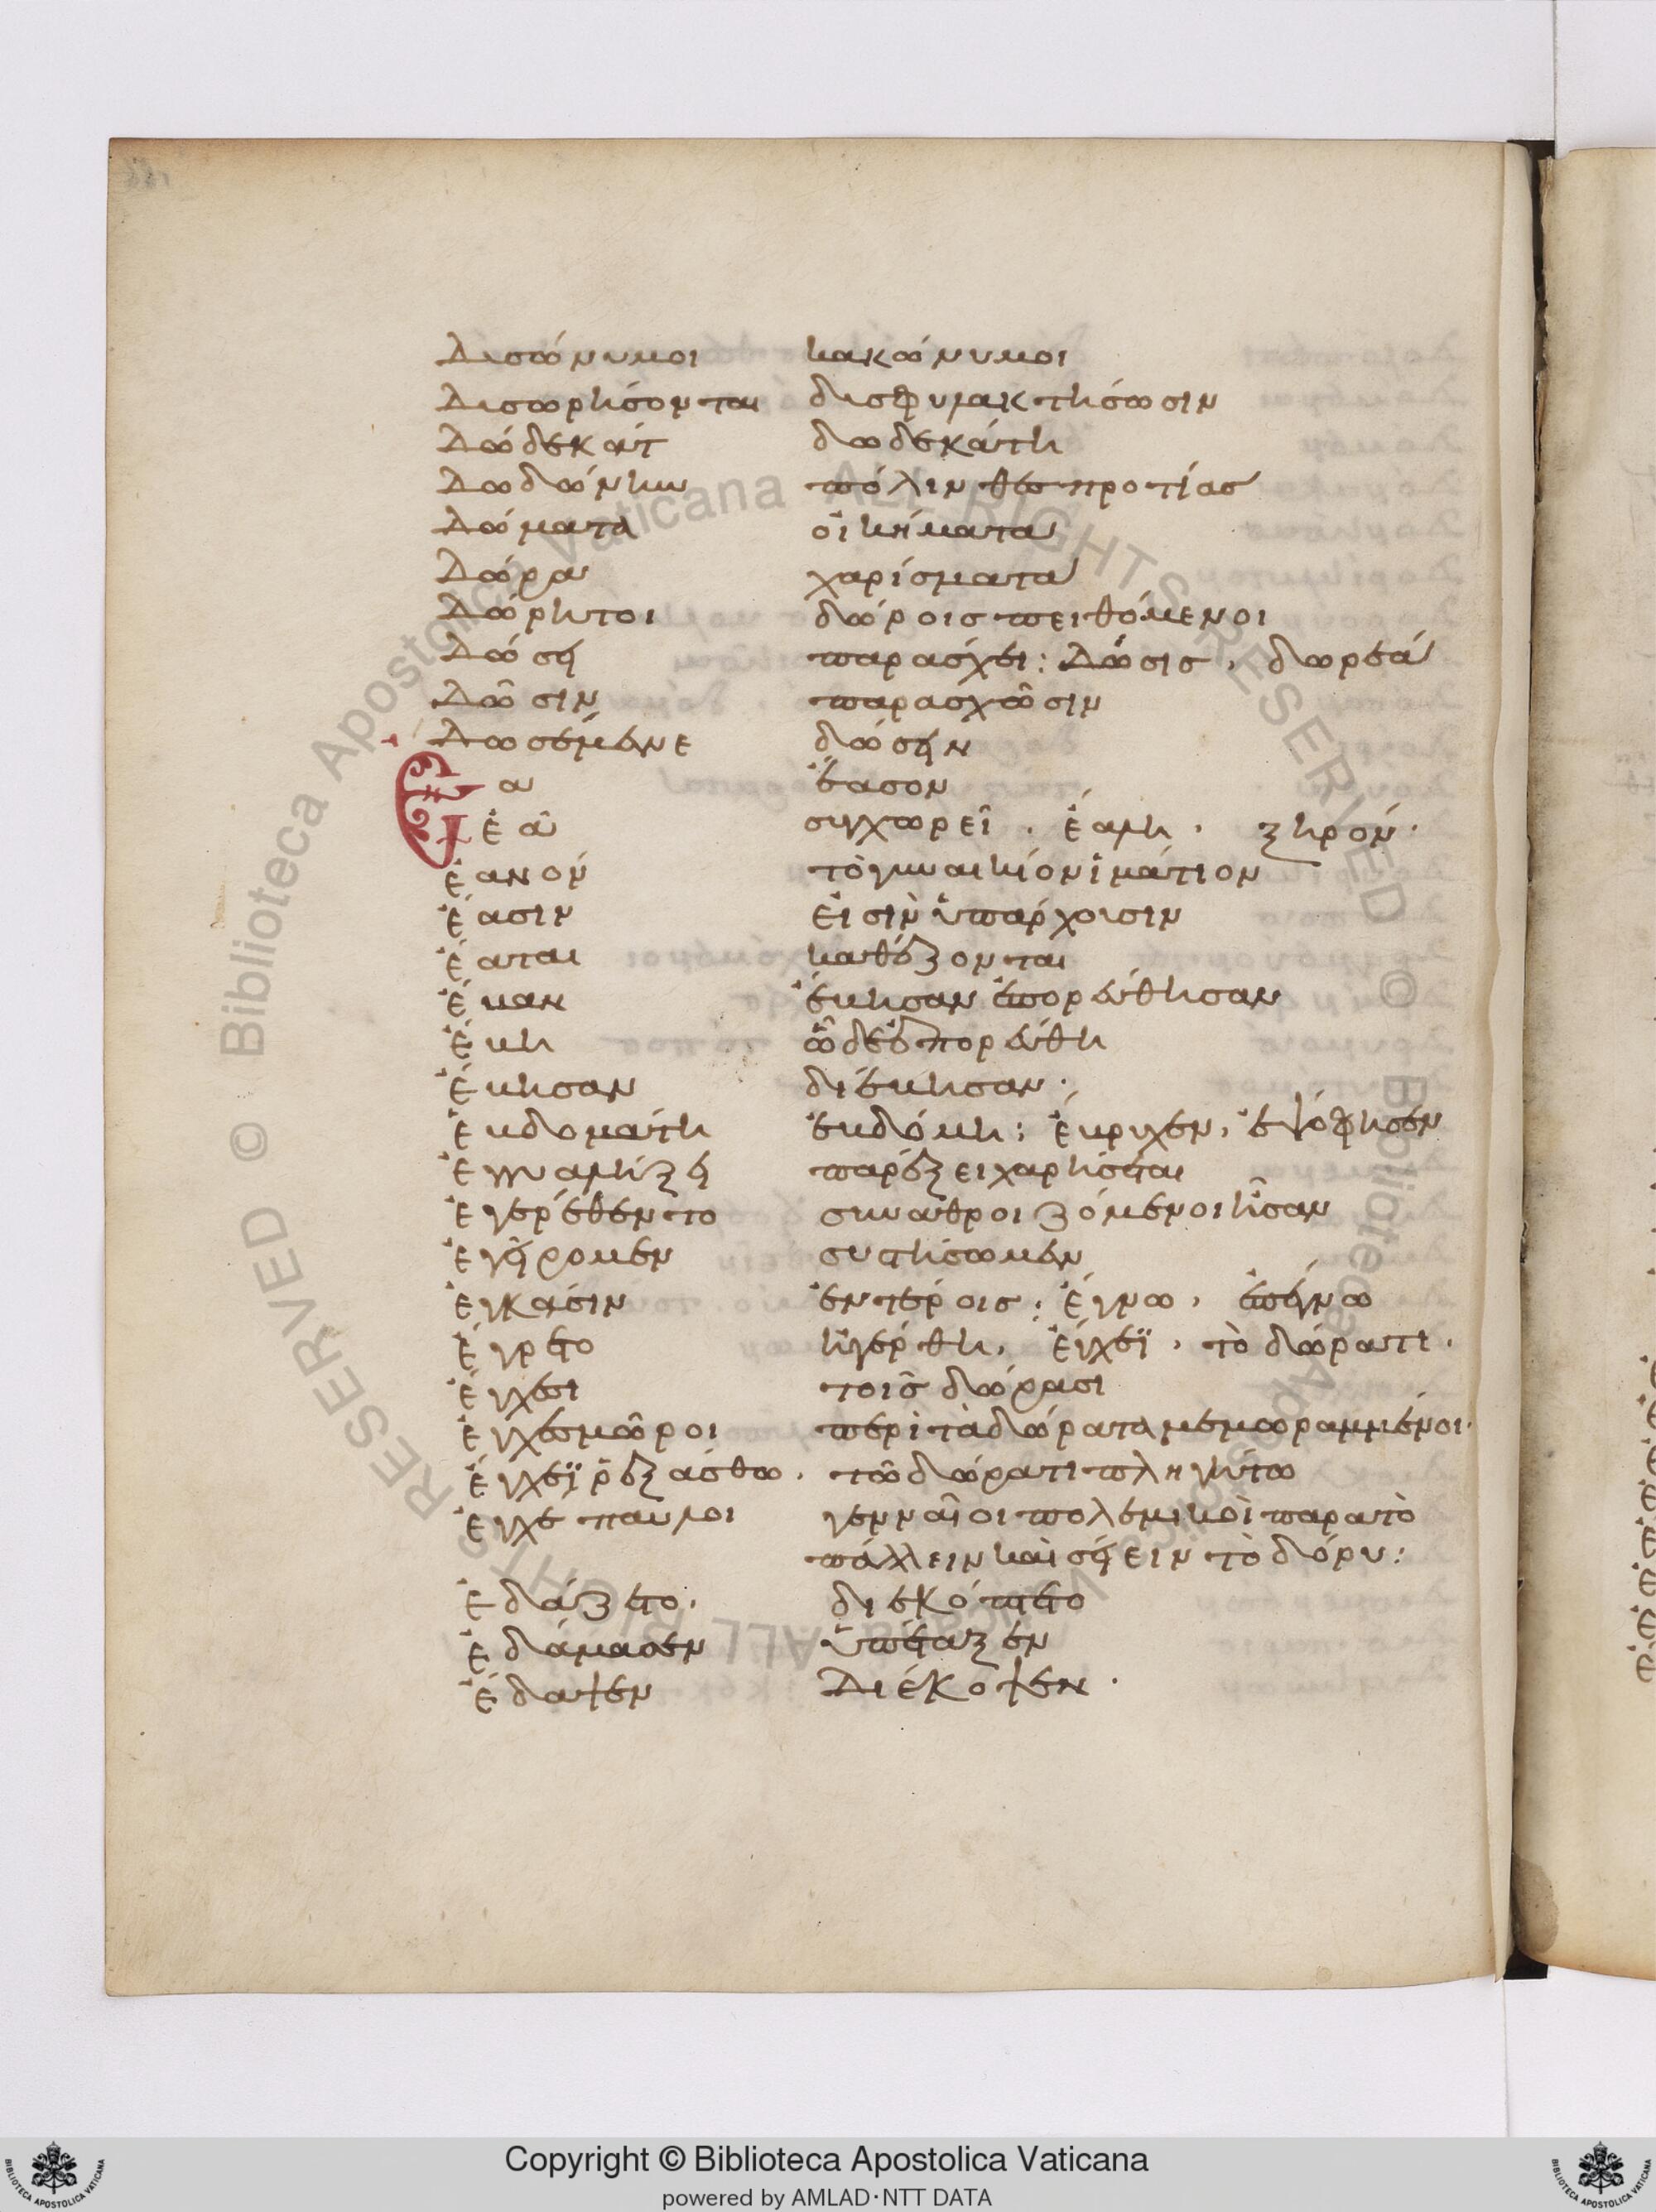 Δυσώνυμοι κακώνυμοι
Δυσωρήσονται δυσφυλακτήσωσιν
Δώδεκάτ δωδεκάτη
Δωδώνην πόλιν θεσπροτίας
Δώματα οἰκήματα
Δώρα χαρίσματα
Δώρητοι δώροις πειθόμενοι
Δώσει παράσχει: Δώσις, δωρεά
Δῶσιν παρασχῶσιν
Δωσέμεναι δώσειν
Εα ἔασον
Ἐᾶ συγχωρεῖ. ἐάνη. ξηρόν.
Ἑανόν τὸ γυναικίον ἱμάτιον
Ἔασιν εἰσὶν ὑπάρχουσιν
Ἕαται καθέζονται
Ἔβαν ἔβησαν ἐπορεύθησαν
Ἔβη ὥδε ἐπορεύθη
Ἔβησαν διέβησαν.
Ἑβδομάτη ἑβδόμη: ἔβραχεν, ἐψόφησεν
Ἐγγυαλίξει παρέξει χαρήσεται
Ἐγερέθεντο συναθροιζόμενοι ἦσαν
Ἐγείρομεν συστήσωμεν
Ἐγκάσιν ἐντέροις: Ἔγνω, ἐπέγνω
Ἔγρετο ἠγέρθη, Ἔγχεϊ, τὸ δώρατι.
Ἔγχεσι τοῖς δώρασι
Ἐγχεσμῶροι περὶ τὰ δώρατα μεμωραμμένοι.
Ἔγχεϊ ῥεξάσθω. τῶ δώρατι πληγήτω
Ἐγχέσπαυλοι γενναῖοι πολεμικοὶ παρα τὸ
πάλλειν καὶ σείειν τὸ δόρυ:
Ἐδάζετο. διεκόπτετο
Ἐδάμασεν ὑπέταξεν
Ἔδαψεν Διέκοψεν.
Copyright © Biblioteca Apostolica Vaticana
powered by AMLAD·NTT DATA